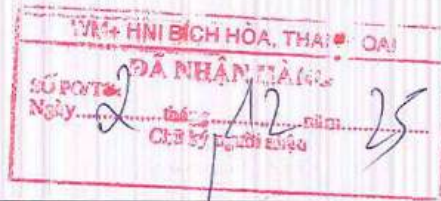 WM+ HNI BÍCH HÒA, THANH OAI
ĐÃ NHẬN HÀNG
SỐ PO/TO:
Ngày 2 tháng 12 năm 25
Chữ ký người nhận